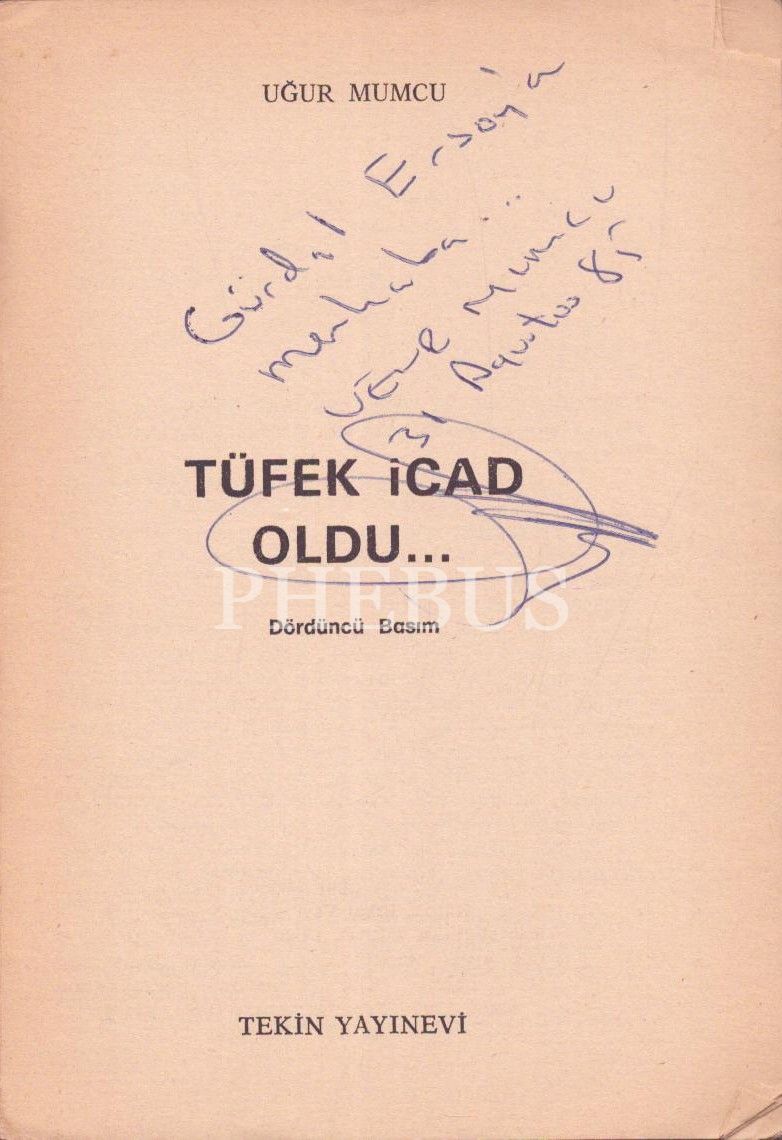 UĞUR MUMCU
Gürdal Ersoy'a
merhaba...
Uğur Mumcu
Ağustos 81
TÜFEK iCAD
OLDU...
PHEBUS
Dördüncü Basım
TEKİN YAYINEVİ